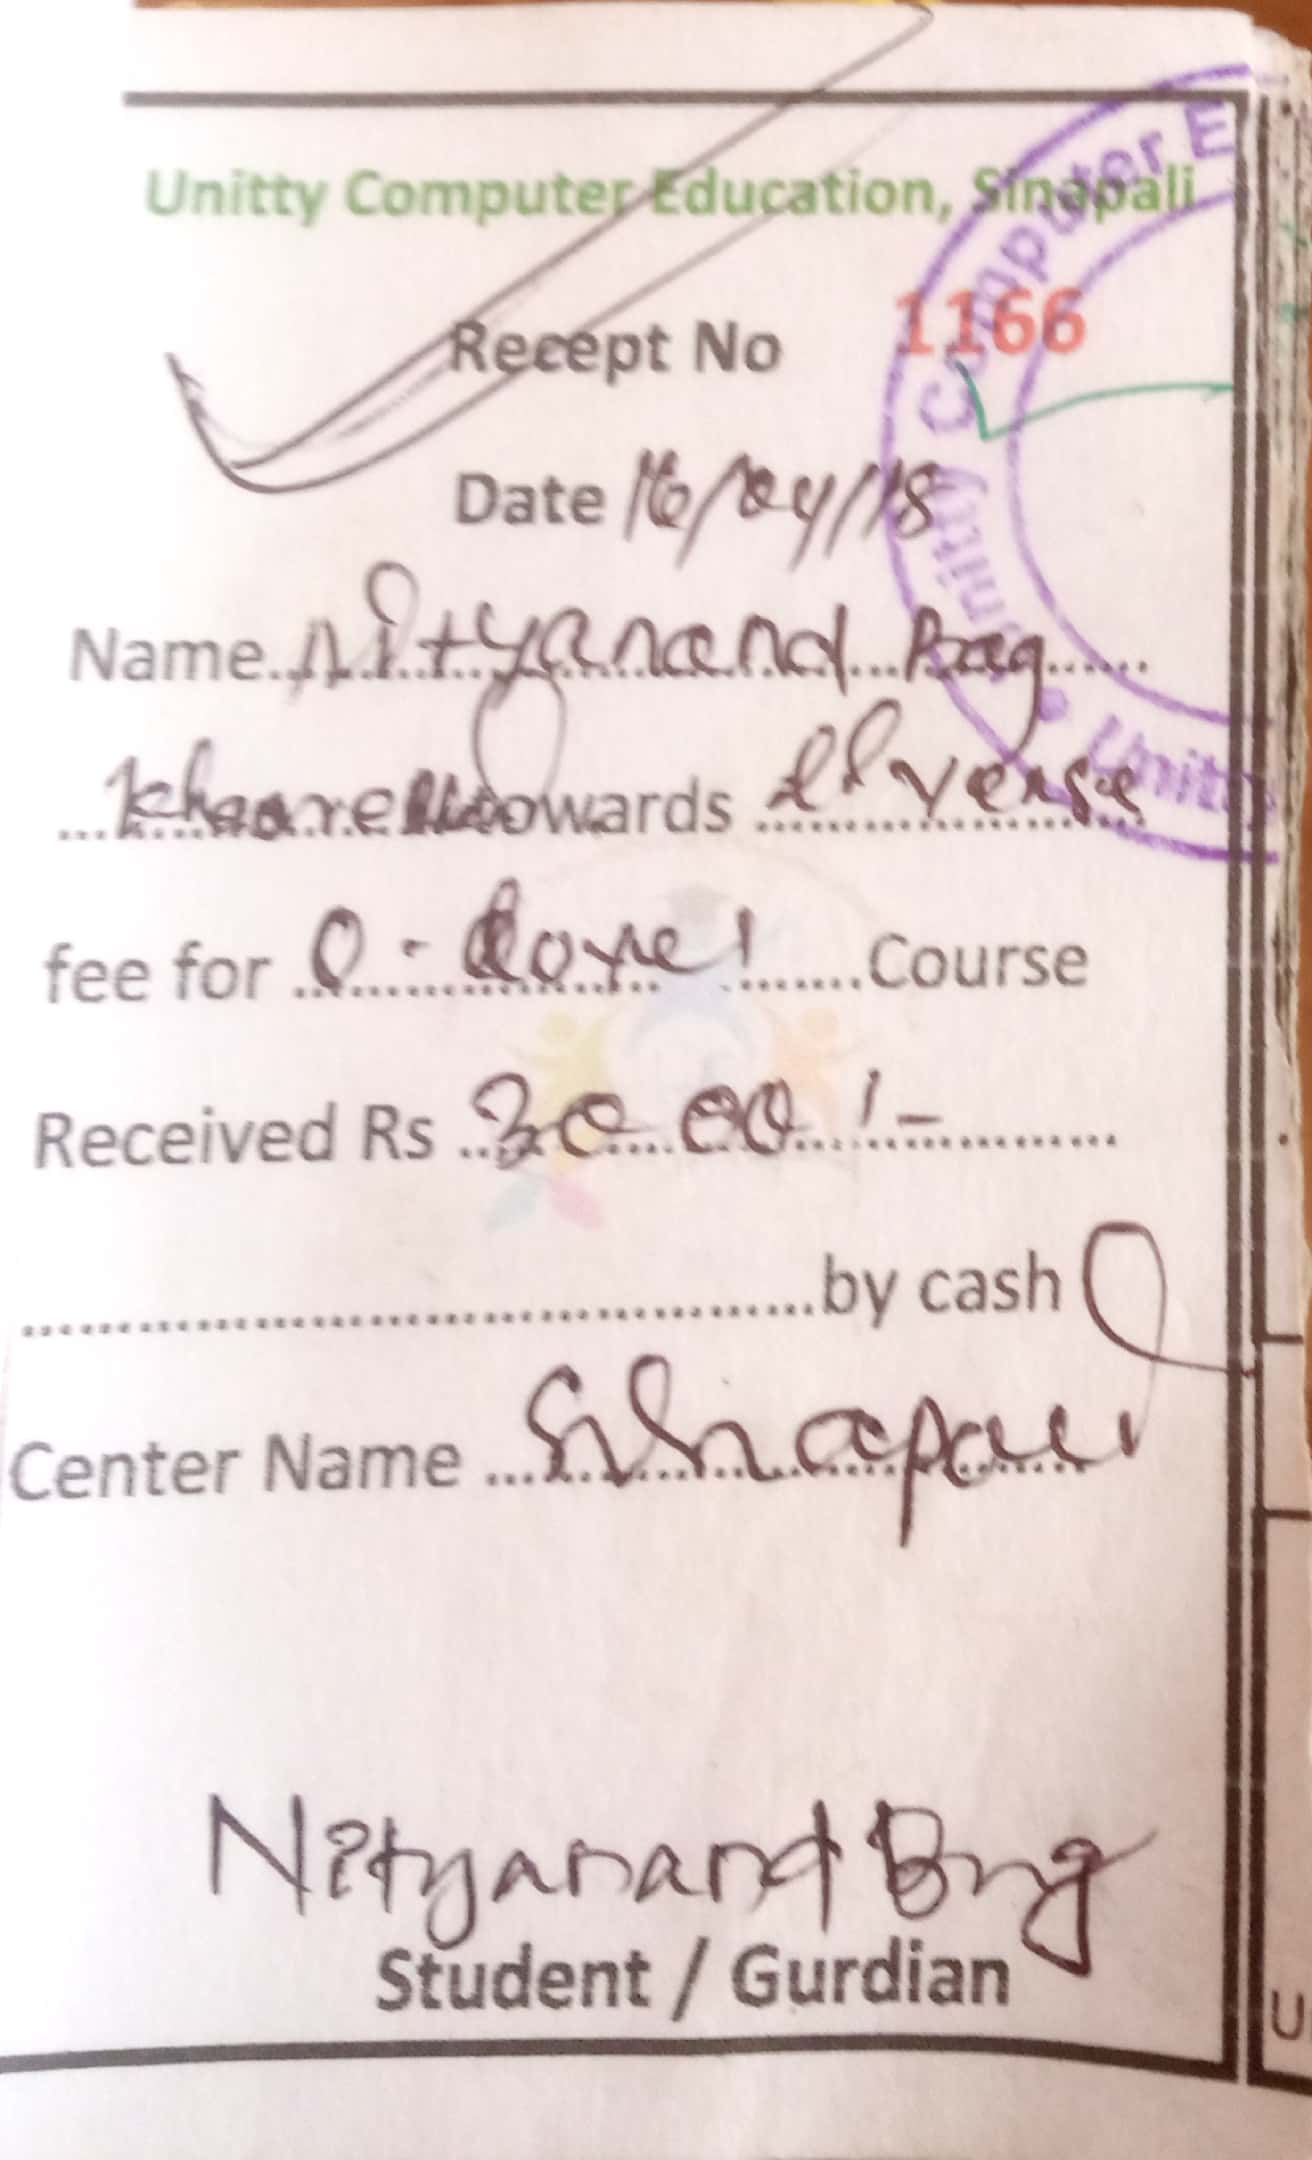 Unitty Computer Education, Sinapali
Recept No 1166
Date 16/04/18
Name Nityanand Bag
towards
fee for O - Level Course
Received Rs 3000/-
by cash
Center Name Sinapali
Nityanand Bag
Student / Gurdian
Unitty Computer E
Unit
U